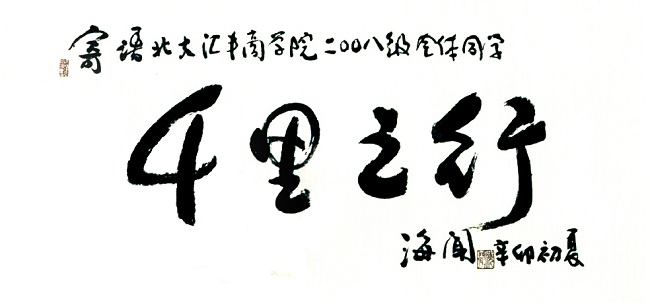 寄语北大汇丰商学院二00八级全体同学
千里之行
海闻 辛卯初夏